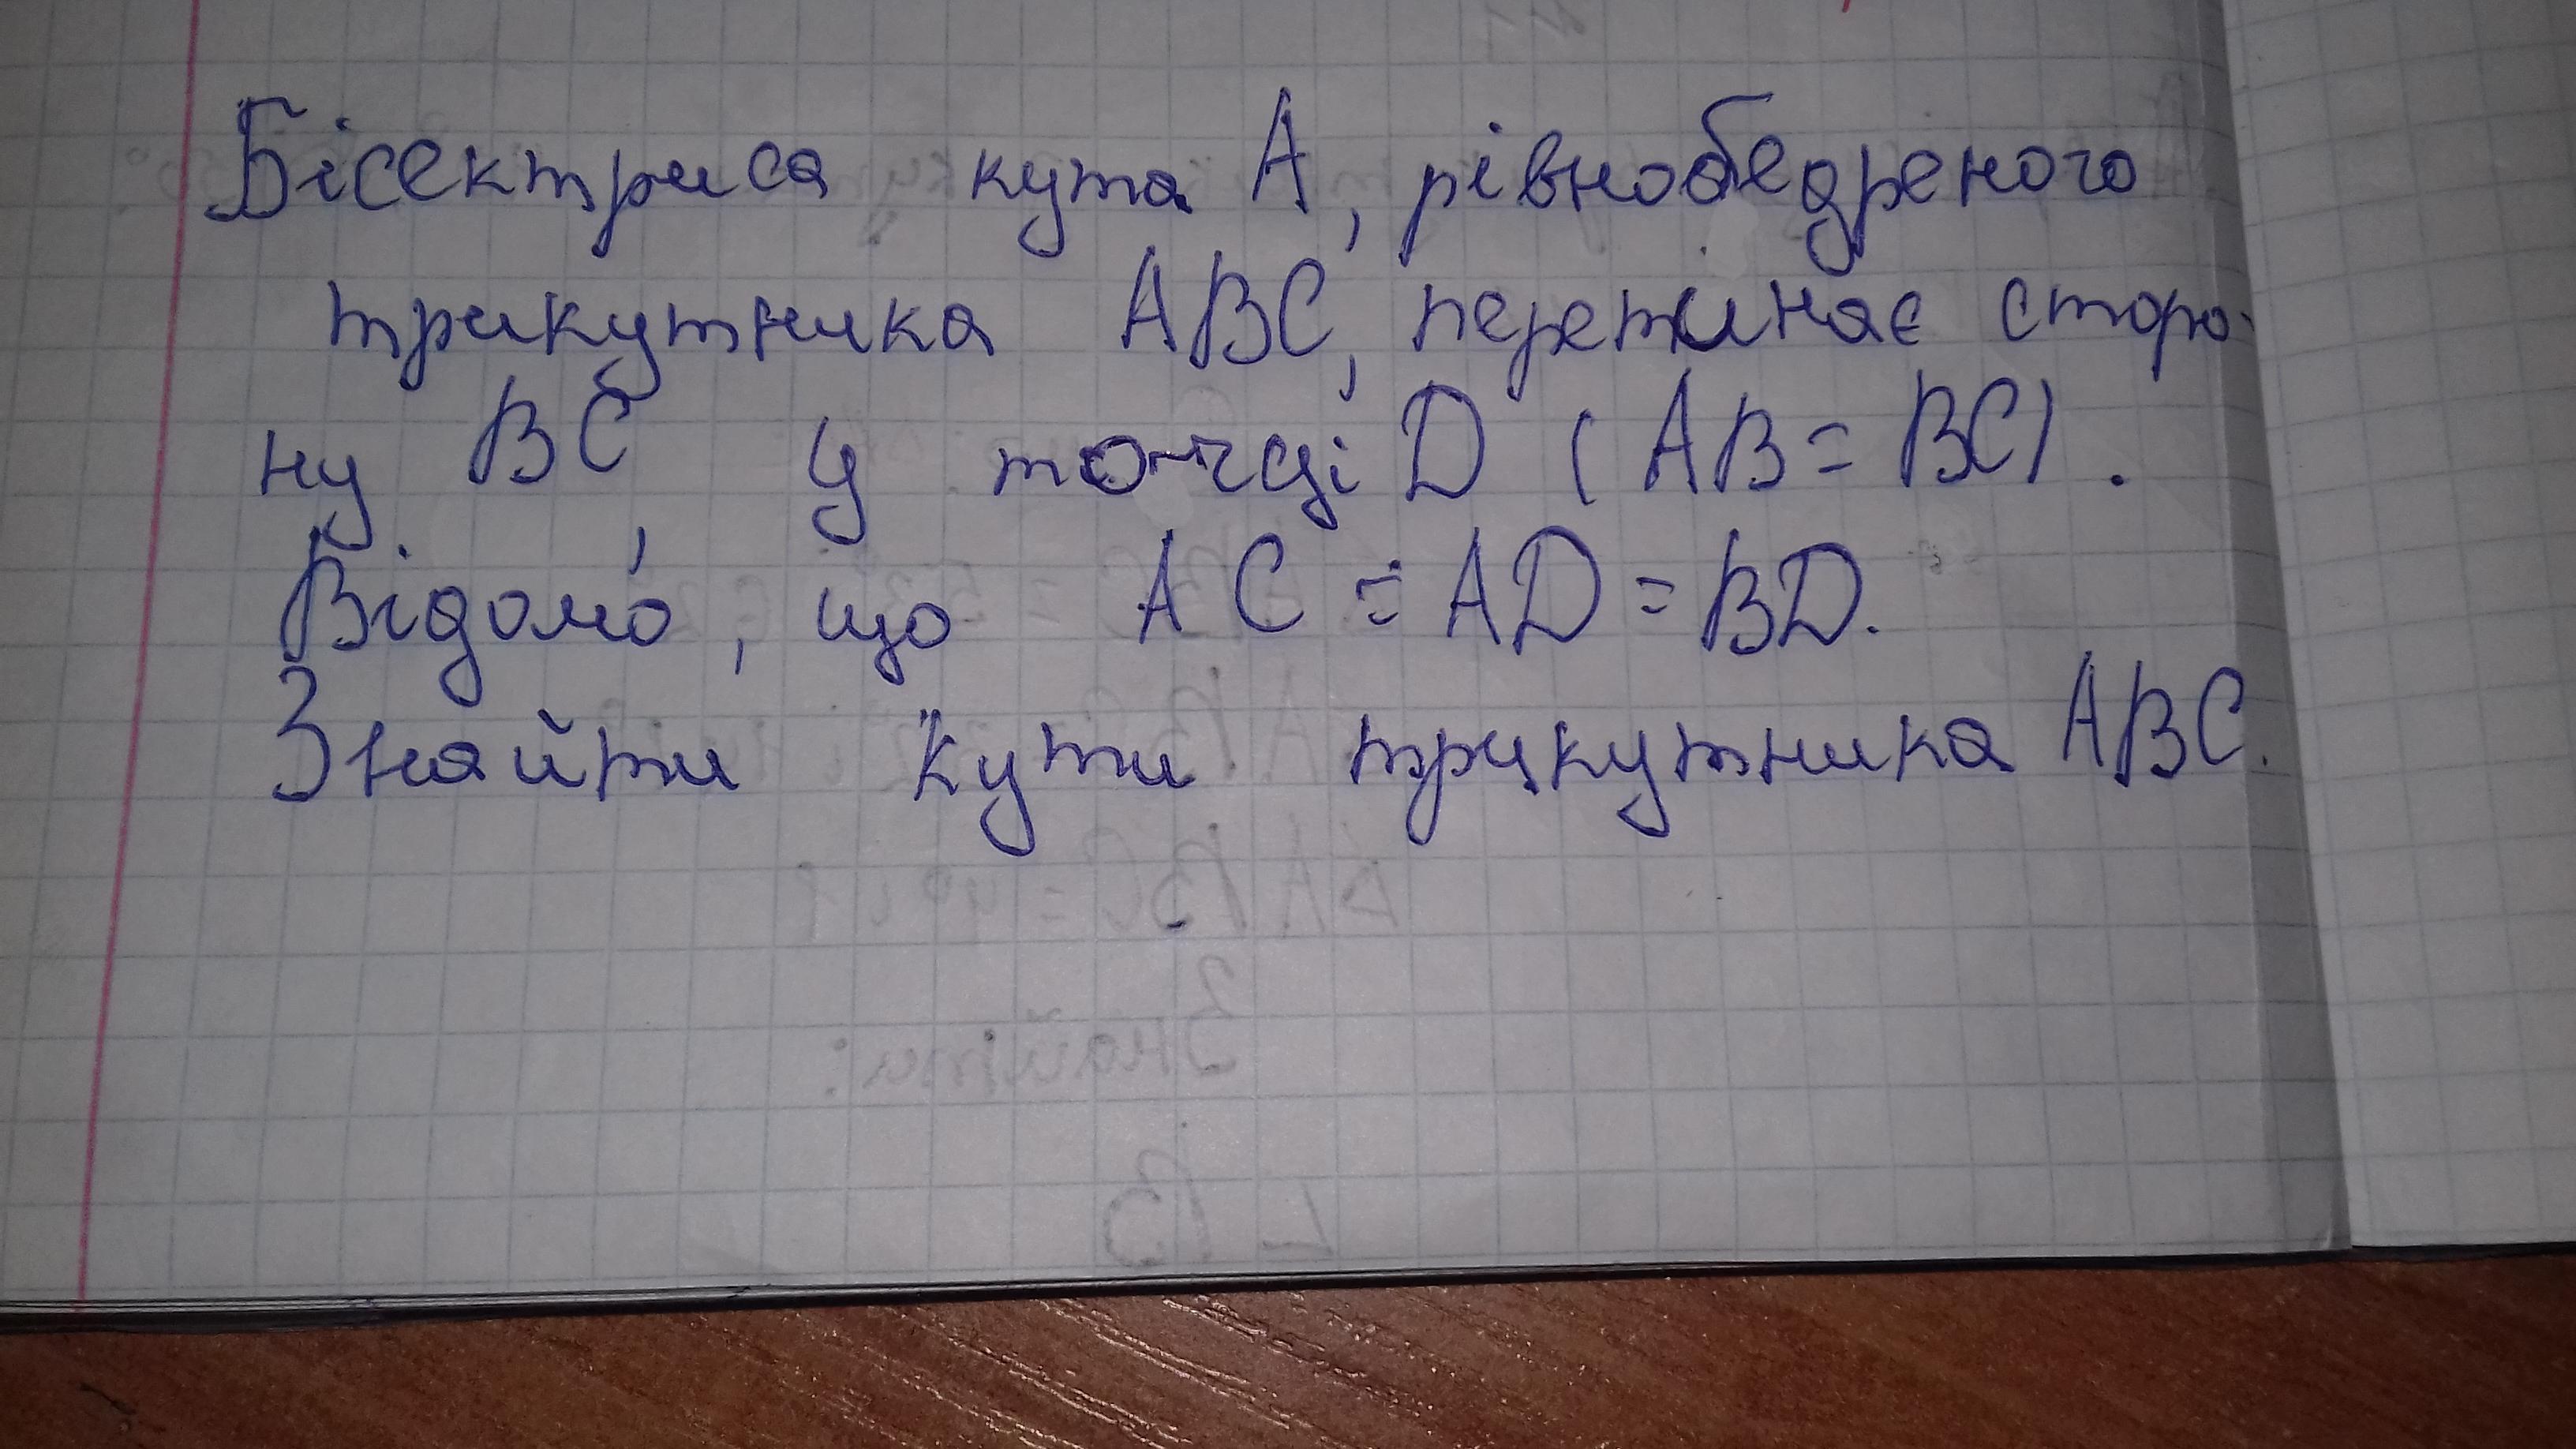 Бісектриса кута А, рівнобедреного
трикутника АВС, перетинає сторо-
ну ВС у точці D (АВ = ВС).
Відомо, що АС = AD = BD.
Знайти кути трикутника АВС.